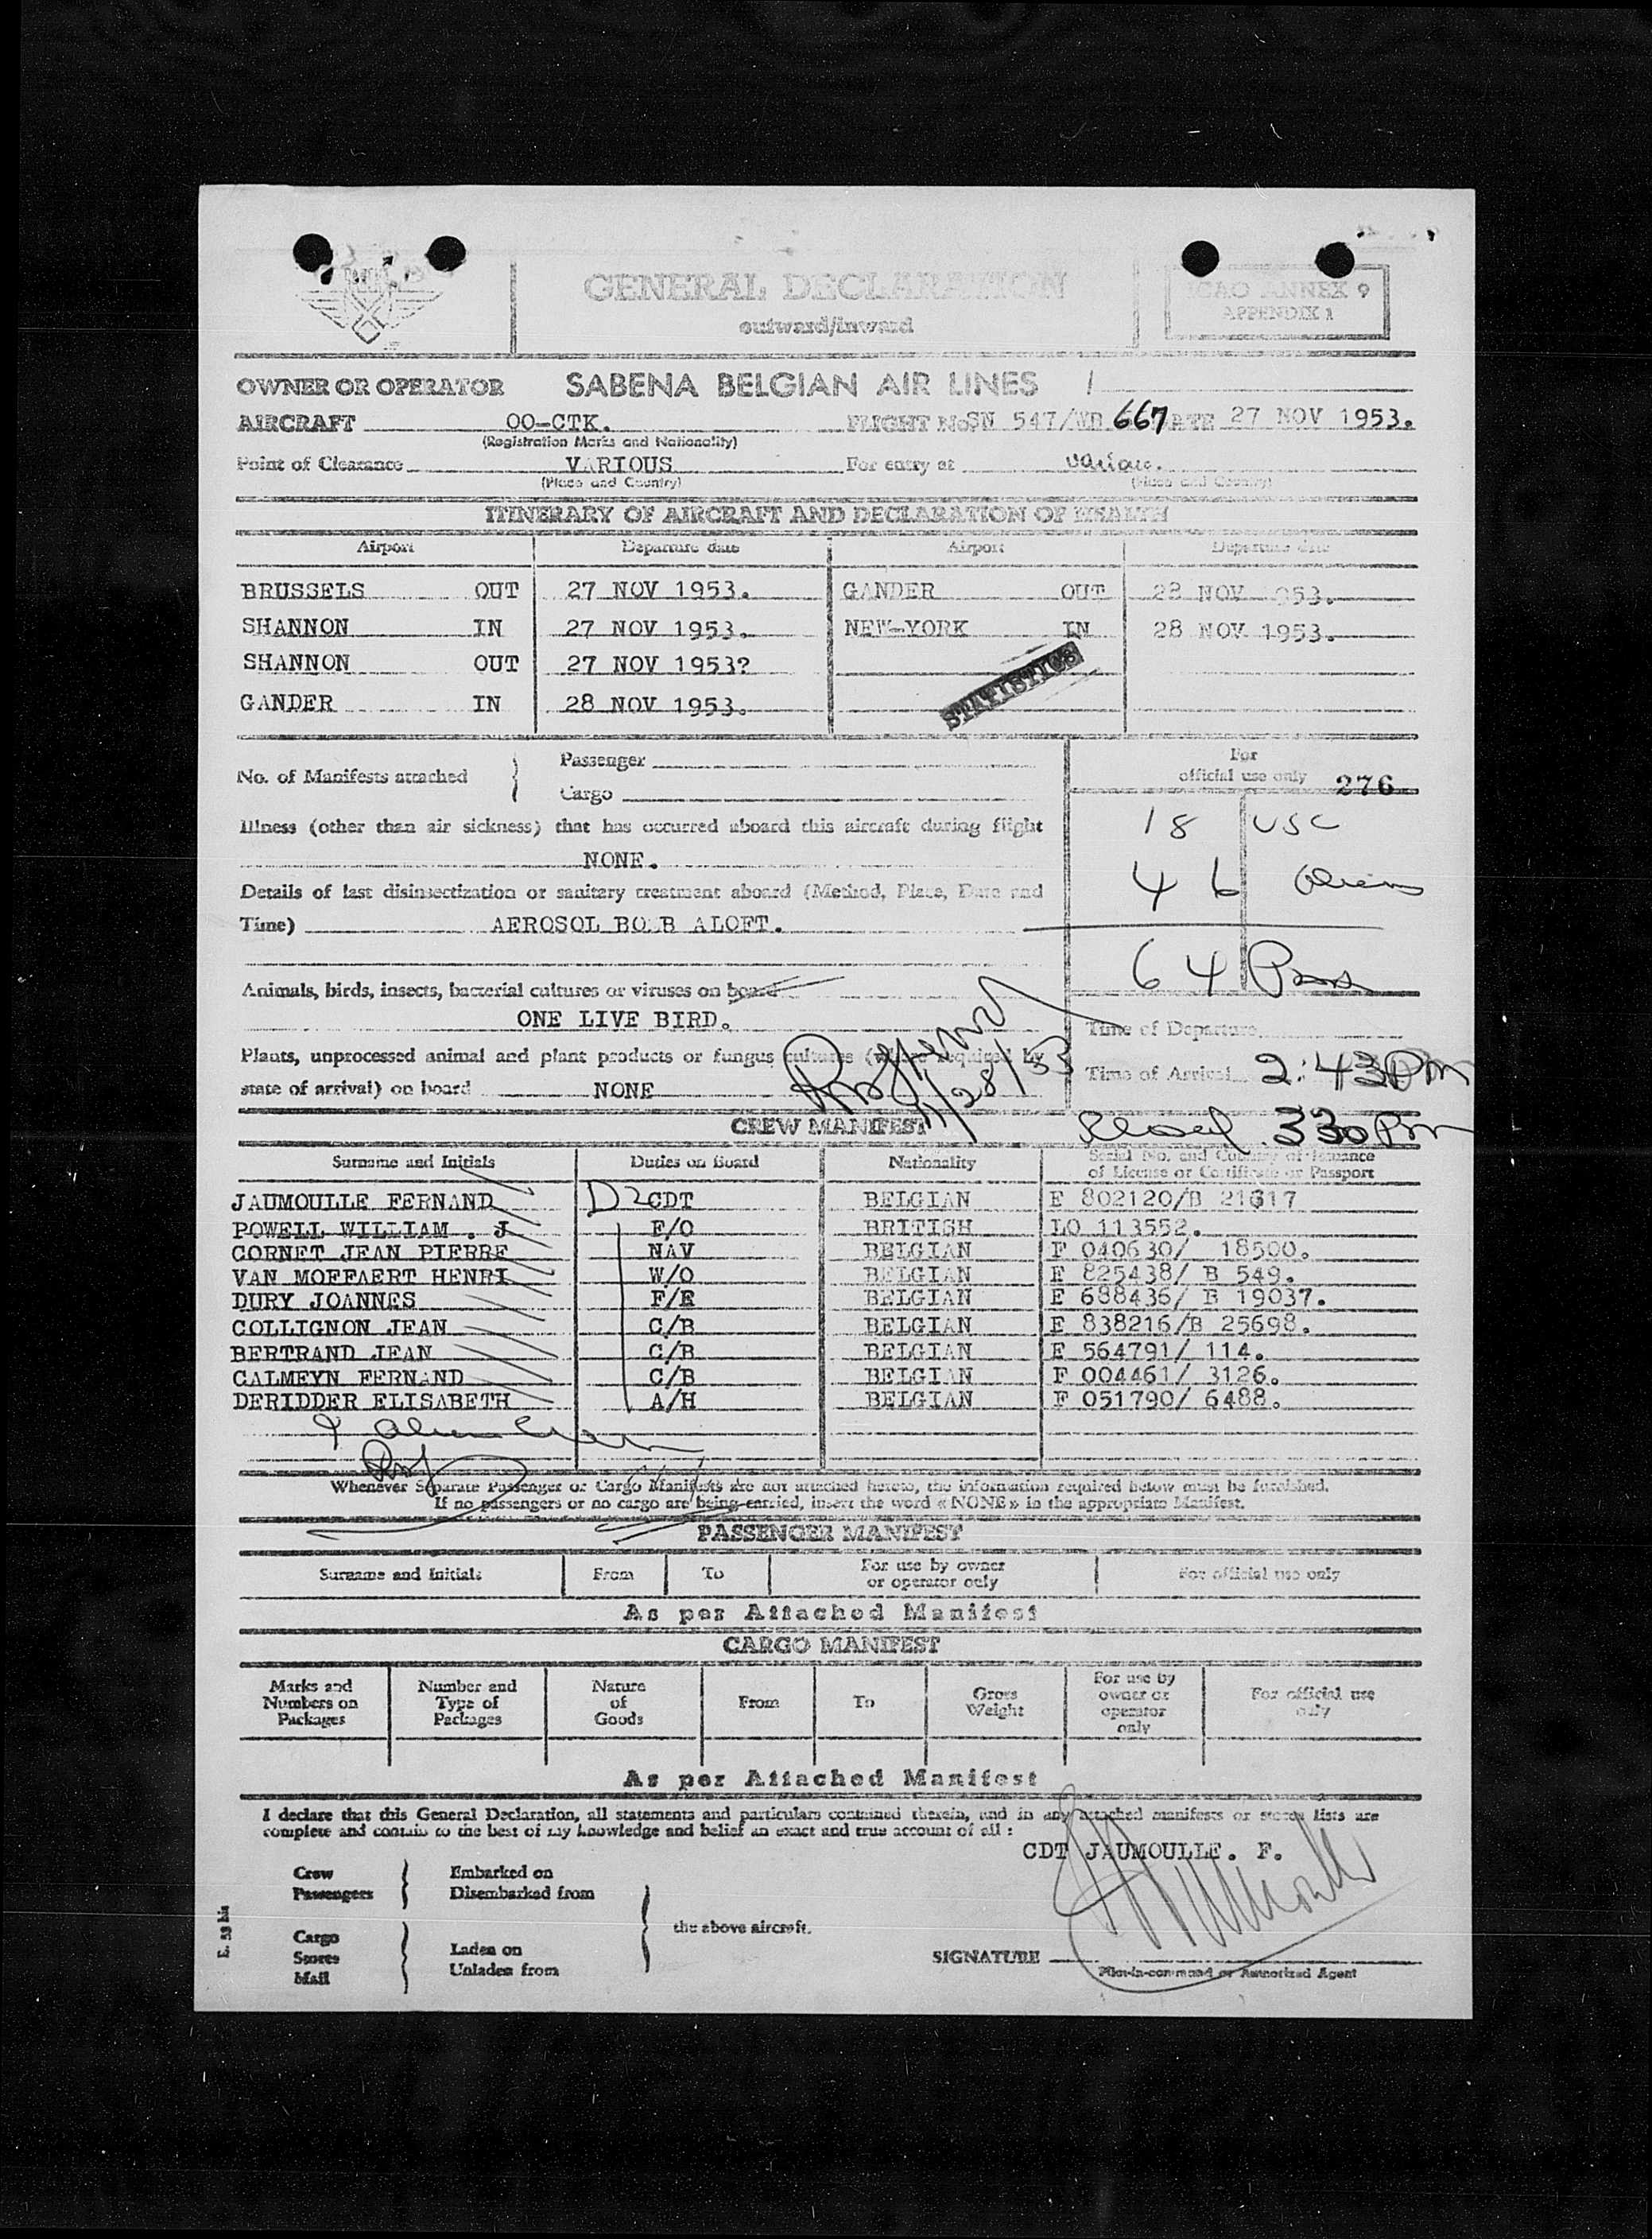 GENERAL DECLARATION
outward/inward
ICAO ANNEX 9
APPENDIX 1
OWNER OR OPERATOR SABENA BELGIAN AIR LINES /
AIRCRAFT OO-CTK. FLIGHT No SN 547/ 667 DATE 27 NOV 1953.
(Registration Marks and Nationality)
Point of Clearance VARIOUS For entry at various.
(Place and Country) (Place and Country)
ITINERARY OF AIRCRAFT AND DECLARATION OF HEALTH
Airport Departure date Airport Departure date
BRUSSELS OUT 27 NOV 1953. GANDER OUT 28 NOV 1953.
SHANNON IN 27 NOV 1953. NEW-YORK IN 28 NOV 1953.
SHANNON OUT 27 NOV 1953?
GANDER IN 28 NOV 1953.
STATISTICS
No. of Manifests attached
Passenger
Cargo
For
official use only 276
Illness (other than air sickness) that has occurred aboard this aircraft during flight
18 USC
NONE.
46 Aliens
Details of last disinsectization or sanitary treatment aboard (Method, Place, Date and
Time) AEROSOL BO B ALOFT.
64 Pass
Animals, birds, insects, bacterial cultures or viruses on board
ONE LIVE BIRD.
Time of Departure
Plants, unprocessed animal and plant products or fungus cultures (where required by
state of arrival) on board NONE
11/28/53
Time of Arrival 2:43 PM
330 PM
CREW MANIFEST
Surname and Initials Duties on Board Nationality Serial No. and Country of Issuance
of License or Certificate or Passport
JAUMOULLE FERNAND D2 CDT BELGIAN E 802120/B 21617
POWELL WILLIAM . J F/O BRITISH LO 113552.
CORNET JEAN PIERRE NAV BELGIAN F 040630/ 18500.
VAN MOFFAERT HENRI W/O BELGIAN E 825438/ B 549.
DURY JOANNES F/E BELGIAN E 688436/ B 19037.
COLLIGNON JEAN C/B BELGIAN E 838216/B 25698.
BERTRAND JEAN C/B BELGIAN E 564791/ 114.
CALMEYN FERNAND C/B BELGIAN F 004461/ 3126.
DERIDDER ELISABETH A/H BELGIAN F 051790/ 6488.
9 Alien Crew
Whenever Separate Passenger or Cargo Manifests are not attached hereto, the information required below must be furnished.
If no passengers or no cargo are being carried, insert the word « NONE » in the appropriate Manifest.
PASSENGER MANIFEST
Surname and Initials From To For use by owner
or operator only For official use only
As per Attached Manifest
CARGO MANIFEST
Marks and
Numbers on
Packages
Number and
Type of
Packages
Nature
of
Goods
From
To
Gross
Weight
For use by
owner or
operator
only
For official use
only
As per Attached Manifest
I declare that this General Declaration, all statements and particulars contained therein, and in any attached manifests or stores lists are
complete and contain to the best of my knowledge and belief an exact and true account of all :
CDT JAUMOULLE. F.
Crew
Passengers
Embarked on
Disembarked from
the above aircraft.
Cargo
Stores
Mail
Laden on
Unladen from
SIGNATURE
Pilot-in-command or Authorized Agent
E. 59 bis